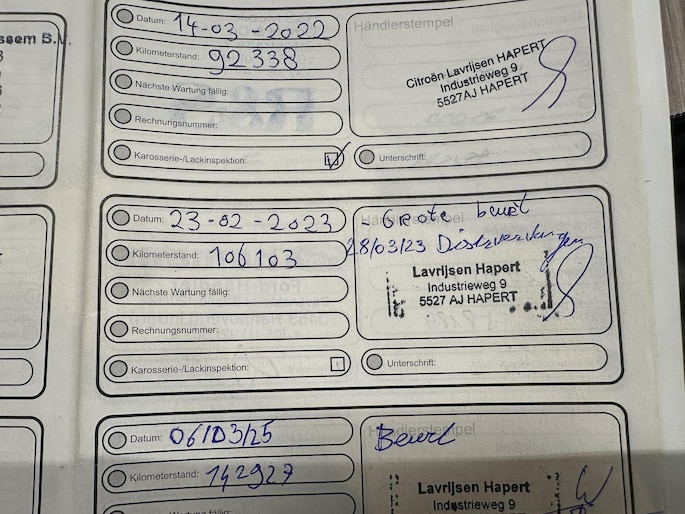 ssem B.V.
Datum: 14-03-2022
Händlerstempel
Kilometerstand: 92338
Citroën Lavrijsen HAPERT
Industrieweg 9
5527AJ HAPERT
Nächste Wartung fällig:
Rechnungsnummer:
Karosserie-/Lackinspektion:
Unterschrift:
Datum: 23-02-2023
Händlerstempel
Grote beurt
28/03/23
Kilometerstand: 106103
Lavrijsen Hapert
Industrieweg 9
5527 AJ HAPERT
Nächste Wartung fällig:
Rechnungsnummer:
Karosserie-/Lackinspektion:
Unterschrift:
Datum: 06/03/25
Händlerstempel
Beurt
Kilometerstand: 142927
Lavrijsen Hapert
Industrieweg 9
Nächste Wartung fällig: